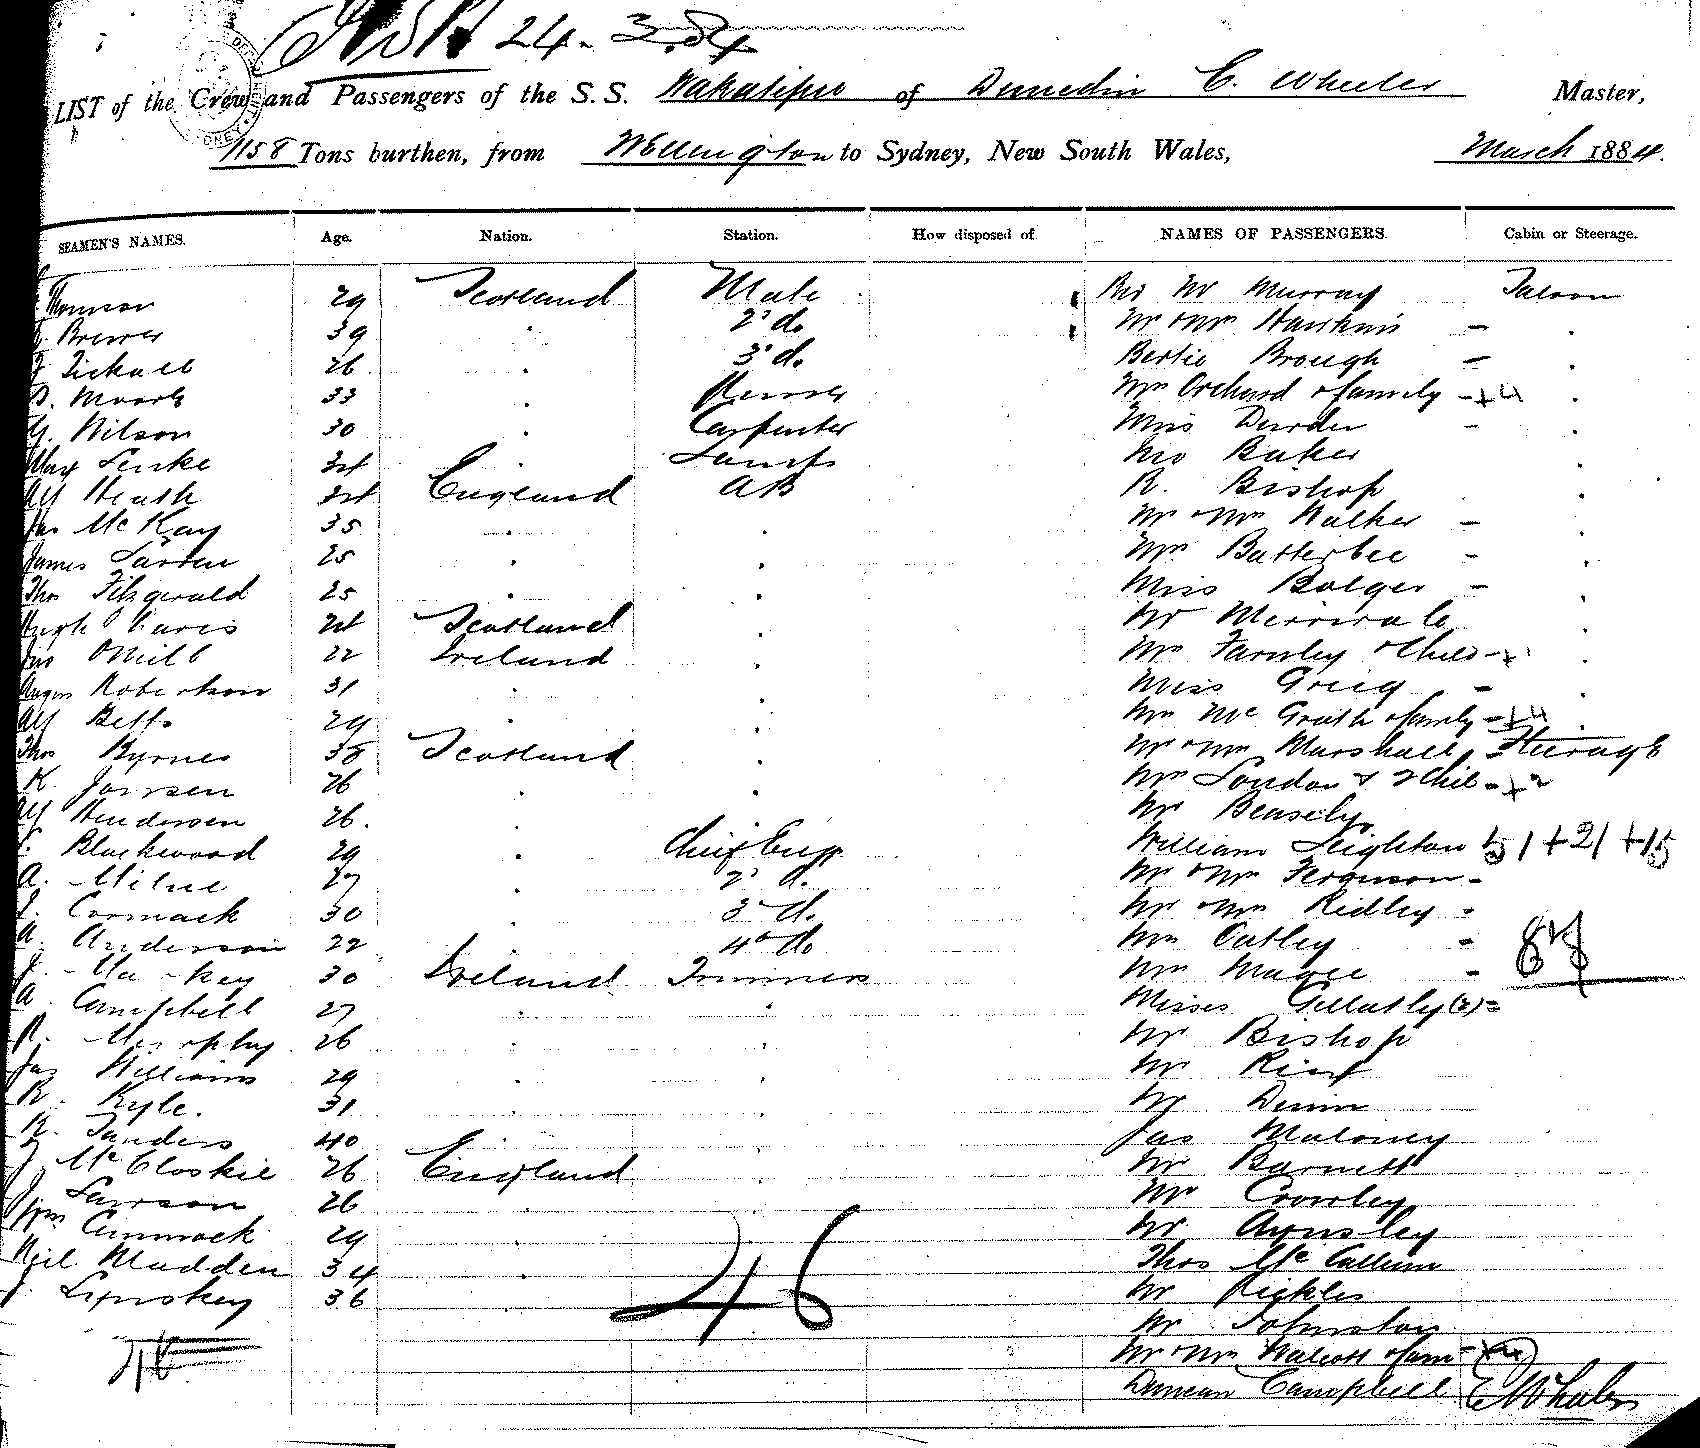 24.3.84
LIST of the Crew and Passengers of the S.S. Wakatipu of Dunedin C. Wheeler Master,
1158 Tons burthen, from Wellington to Sydney, New South Wales, March 1884.
SEAMEN'S NAMES. Age. Nation. Station. How disposed of NAMES OF PASSENGERS. Cabin or Steerage.
Thomson 29 Scotland Mate Mr Murray Saloon
Brewer 39 " 2d do Mr & Mrs Hawkins -
Tickall 26 " 3d do Bertie Brough -
D. Moore 33 " Mrs Orchard & family - +4
G. Wilson 30 " Carpenter Miss Durden -
34 Lamps Baker
Alf Heath 24 England AB R. Bishop
Jas McKay 35 " " Mr & Mrs Walker -
James 25 " " Mrs Batterbee -
Thos Fitzgerald 25 " " Miss Bolger -
Hugh 24 Scotland " Mr Merrivale
Jas ONeill 22 Ireland " Mrs Farnley & Child -
Angus Robertson 31 " " Miss Greig -
Alf Betts 29 " " Mrs McGrath & family - +4
Thos Byrnes 38 Scotland " Mr & Mrs Marshall Steerage
K. Jansen 26 " " Mrs London & 2 Chil - +2
Alf Henderson 26. Mr Beasily
Blackwood 29 " Chief Eng William Leighton 51+21+15
A. Milne 27 " 2d d. Mr & Mrs Ferguson -
Cormack 30 " 3d d. Mr & Mrs Ridley -
A. Anderson 22 " 4th do Mrs Oatley -
J. Mackey 30 Ireland Trimmers Mrs Magee - 87
A. Campbell 27 " " Misses Gellatly (2) =
R. Murphy 26 " " Mr Bishop
Jas Williams 29 " " Mr
R. Kyle. 31 " " Mr
R. Sanders 40 " Jas Maloney
J McCloskie 26 England " Mr Barnett
J Lawson 26 " " Mr Crowley
Wm Cammack 29 Mr Aynsley
Neil Madden 34 " Thos McCallum
J. Lipnskey 36 Mr Pickles
46
Mr Johnston
Mr & Mrs Walcott & fam -
Duncan Campbell C Wheeler